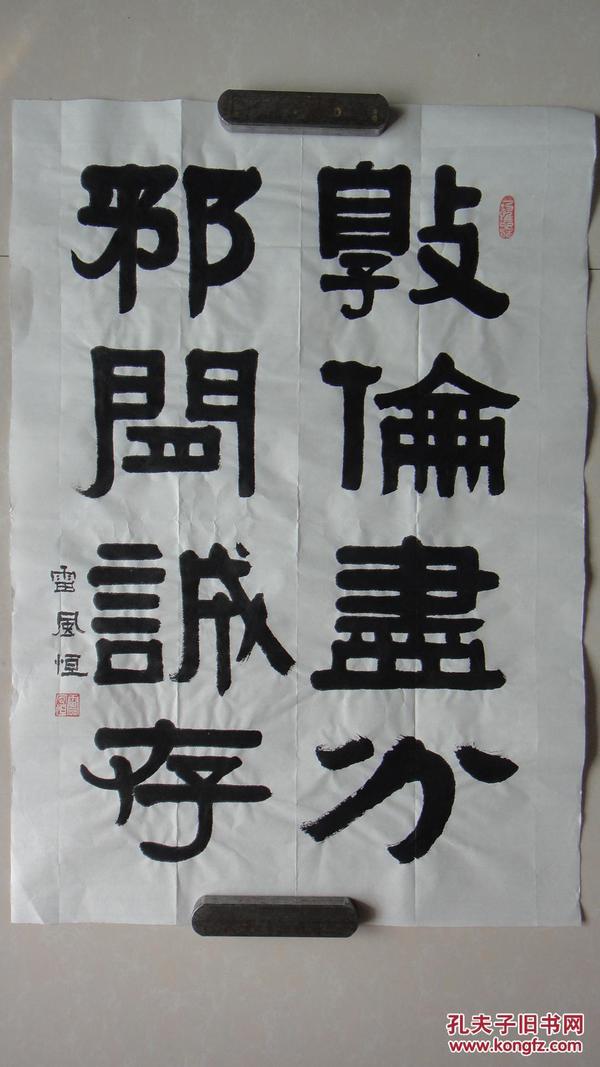 敦倫盡分
邪誠存
雷風恆
孔夫子旧书网
www.kongfz.com